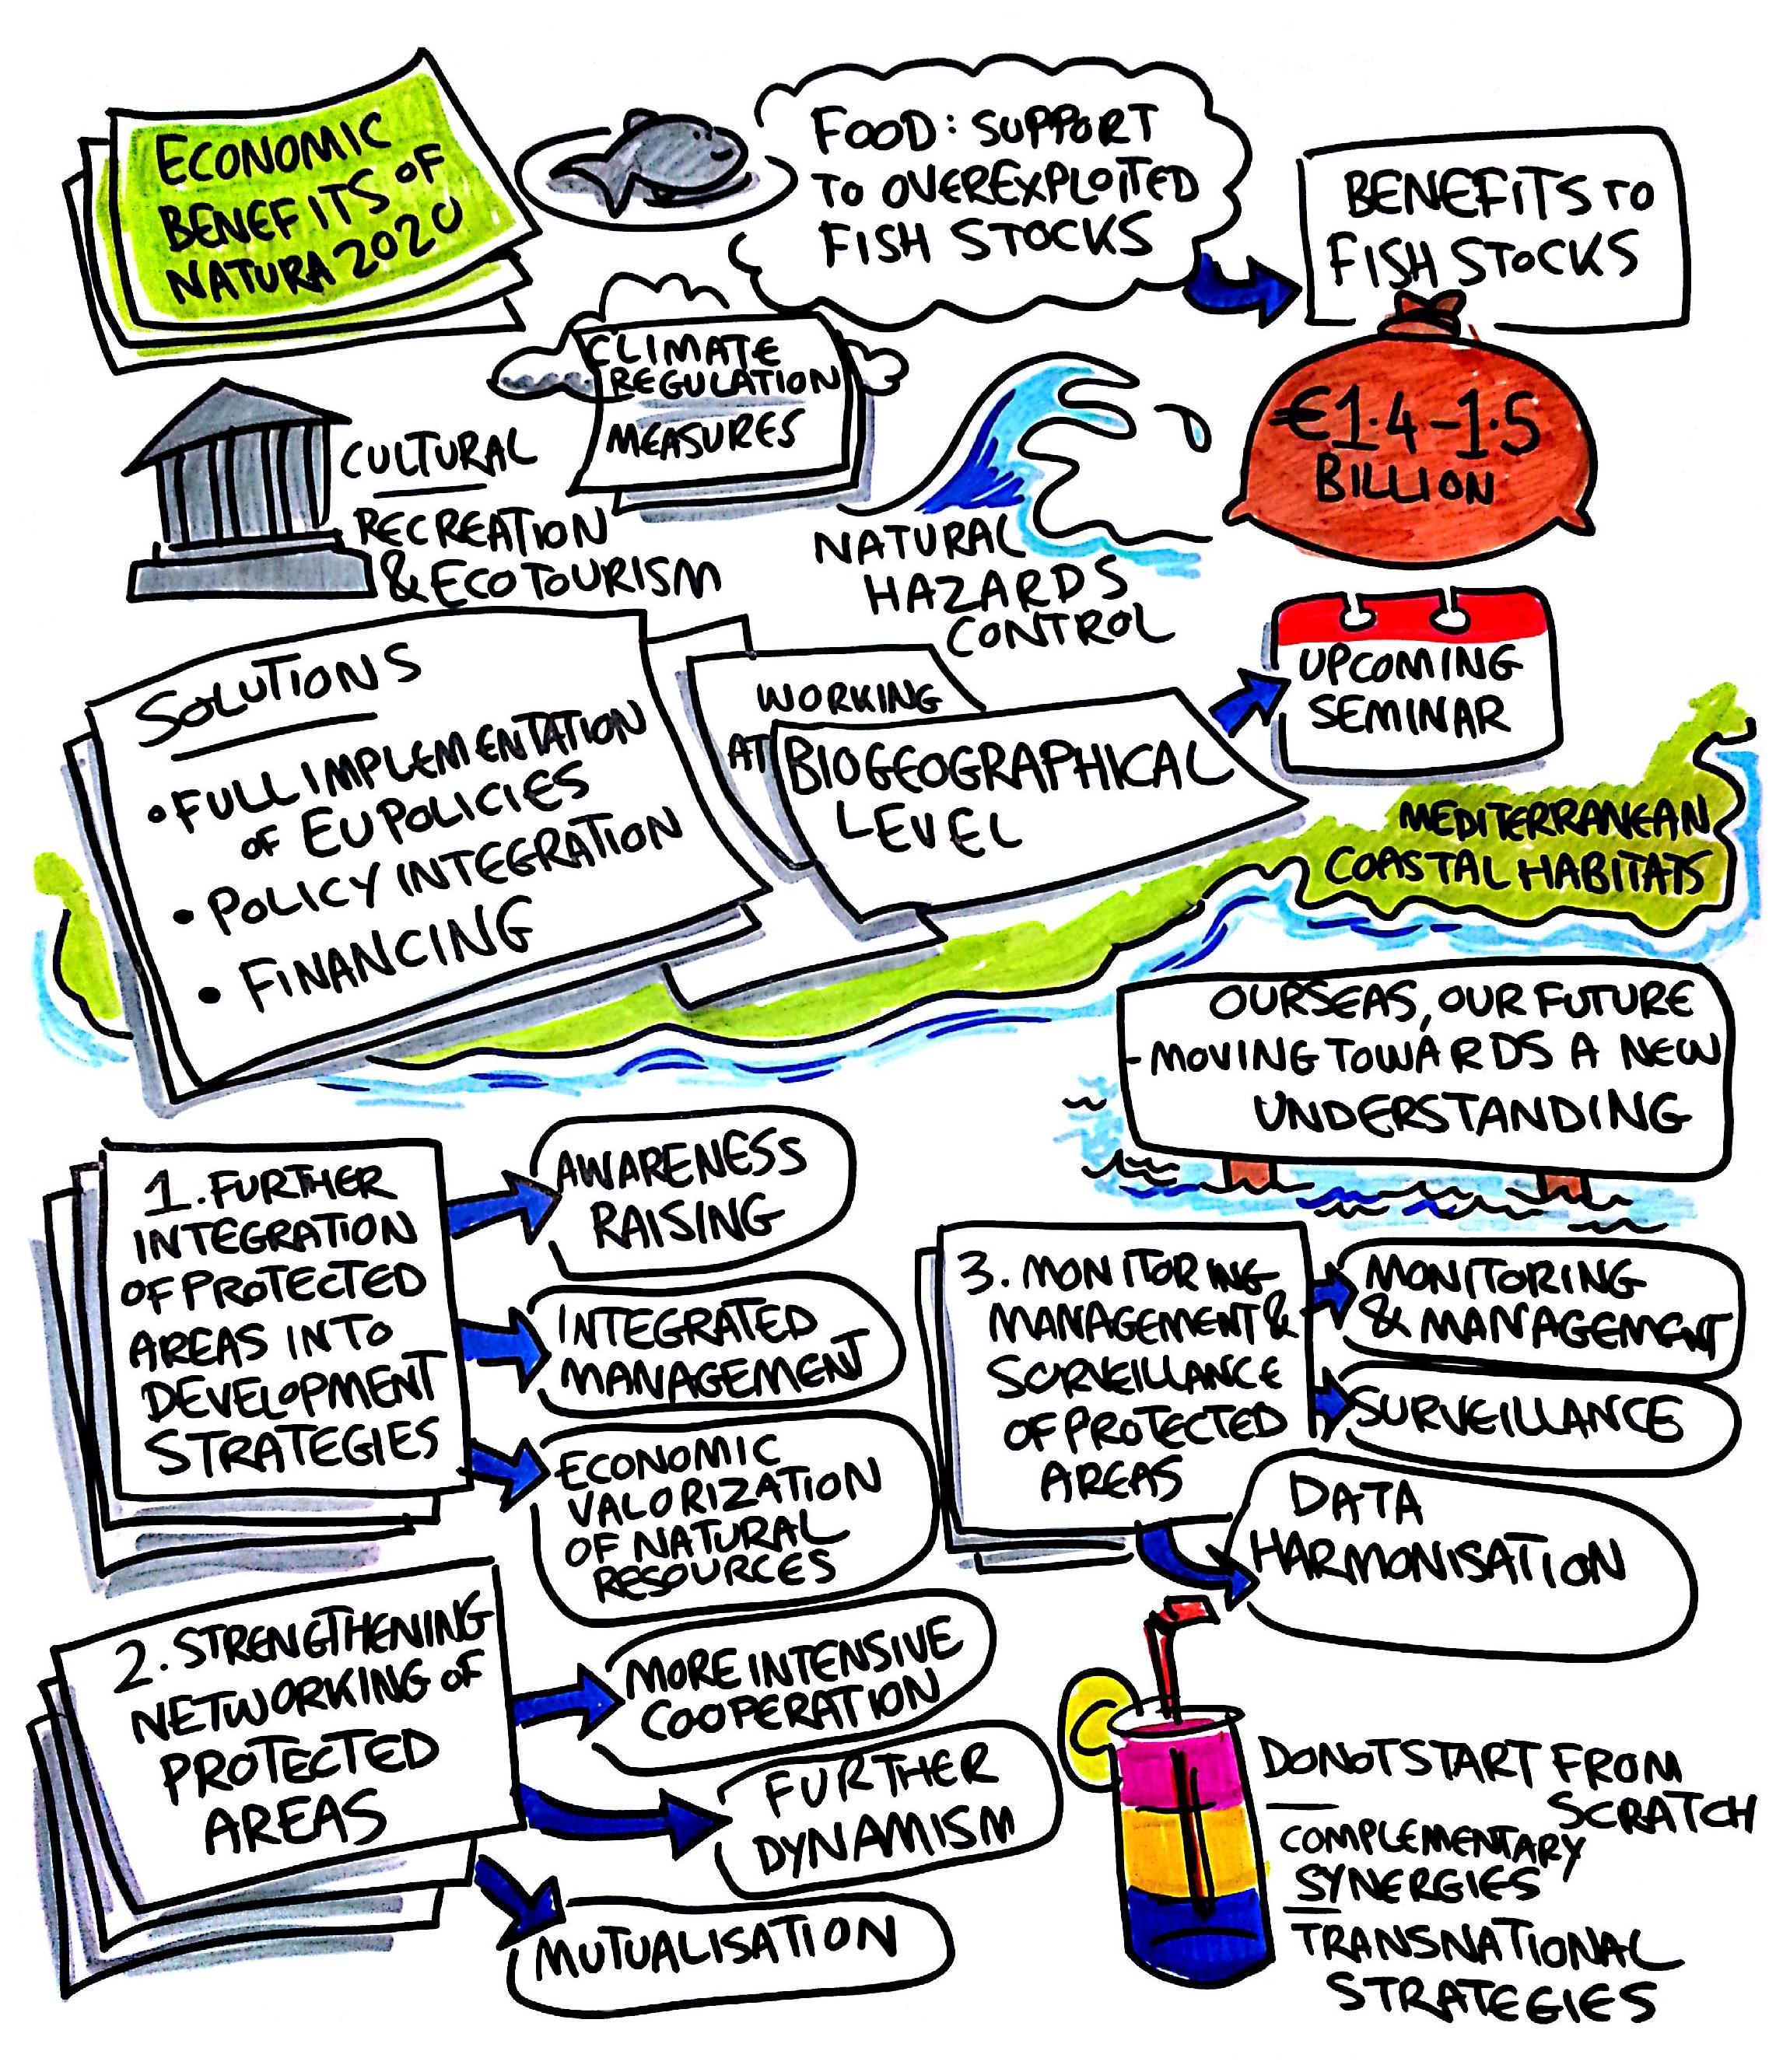 ECONOMIC
BENEFITS OF
NATURA 2020
FOOD: SUPPORT
TO OVEREXPLOITED
FISH STOCKS
BENEFITS TO
FISH STOCKS
€1.4-1.5
BILLION
CLIMATE
REGULATION
MEASURES
CULTURAL
RECREATION
& ECOTOURISM
NATURAL
HAZARDS
CONTROL
SOLUTIONS
• FULL IMPLEMENTATION
OF EU POLICIES
• POLICY INTEGRATION
• FINANCING
WORKING
AT BIOGEOGRAPHICAL
LEVEL
UPCOMING
SEMINAR
MEDITERRANEAN
COASTAL HABITATS
OUR SEAS, OUR FUTURE
- MOVING TOWARDS A NEW
UNDERSTANDING
1. FURTHER
INTEGRATION
OF PROTECTED
AREAS INTO
DEVELOPMENT
STRATEGIES
AWARENESS
RAISING
INTEGRATED
MANAGEMENT
ECONOMIC
VALORIZATION
OF NATURAL
RESOURCES
2. STRENGTHENING
NETWORKING OF
PROTECTED
AREAS
MORE INTENSIVE
COOPERATION
FURTHER
DYNAMISM
MUTUALISATION
3. MONITORING
MANAGEMENT &
SURVEILLANCE
OF PROTECTED
AREAS
MONITORING
& MANAGEMENT
SURVEILLANCE
DATA
HARMONISATION
DO NOT START FROM
SCRATCH
COMPLEMENTARY
SYNERGIES
TRANSNATIONAL
STRATEGIES